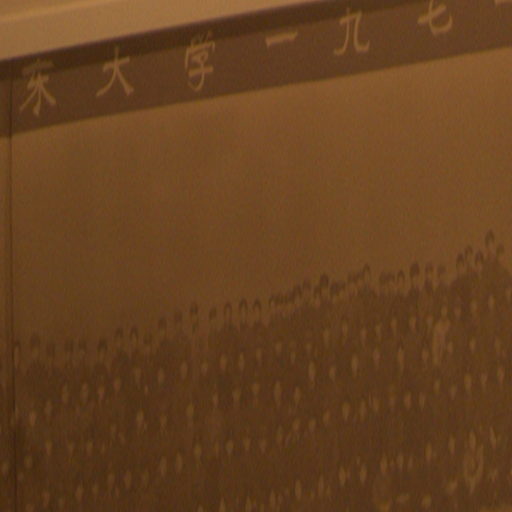 东大学一九七